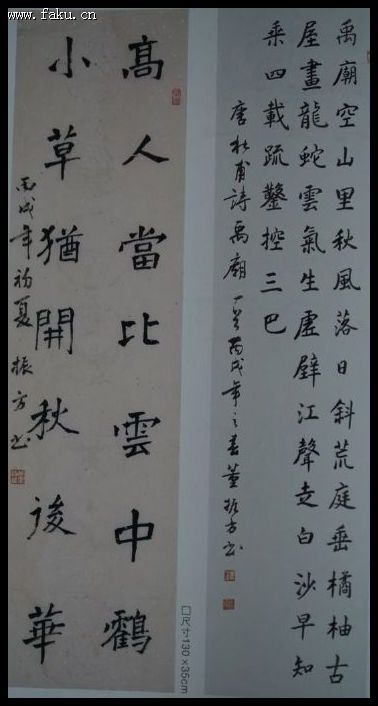 www.faku.cn
禹廟空山里秋風落日斜荒庭垂橘柚古
屋畫龍蛇雲氣生虛壁江聲走白沙早知
乘四載疏鑿控三巴
唐杜甫詩禹廟一首丙戌年之春董振方书
高人當比雲中鶴
小草猶開秋後華
丙戌年初夏振方书
□尺寸130×35cm